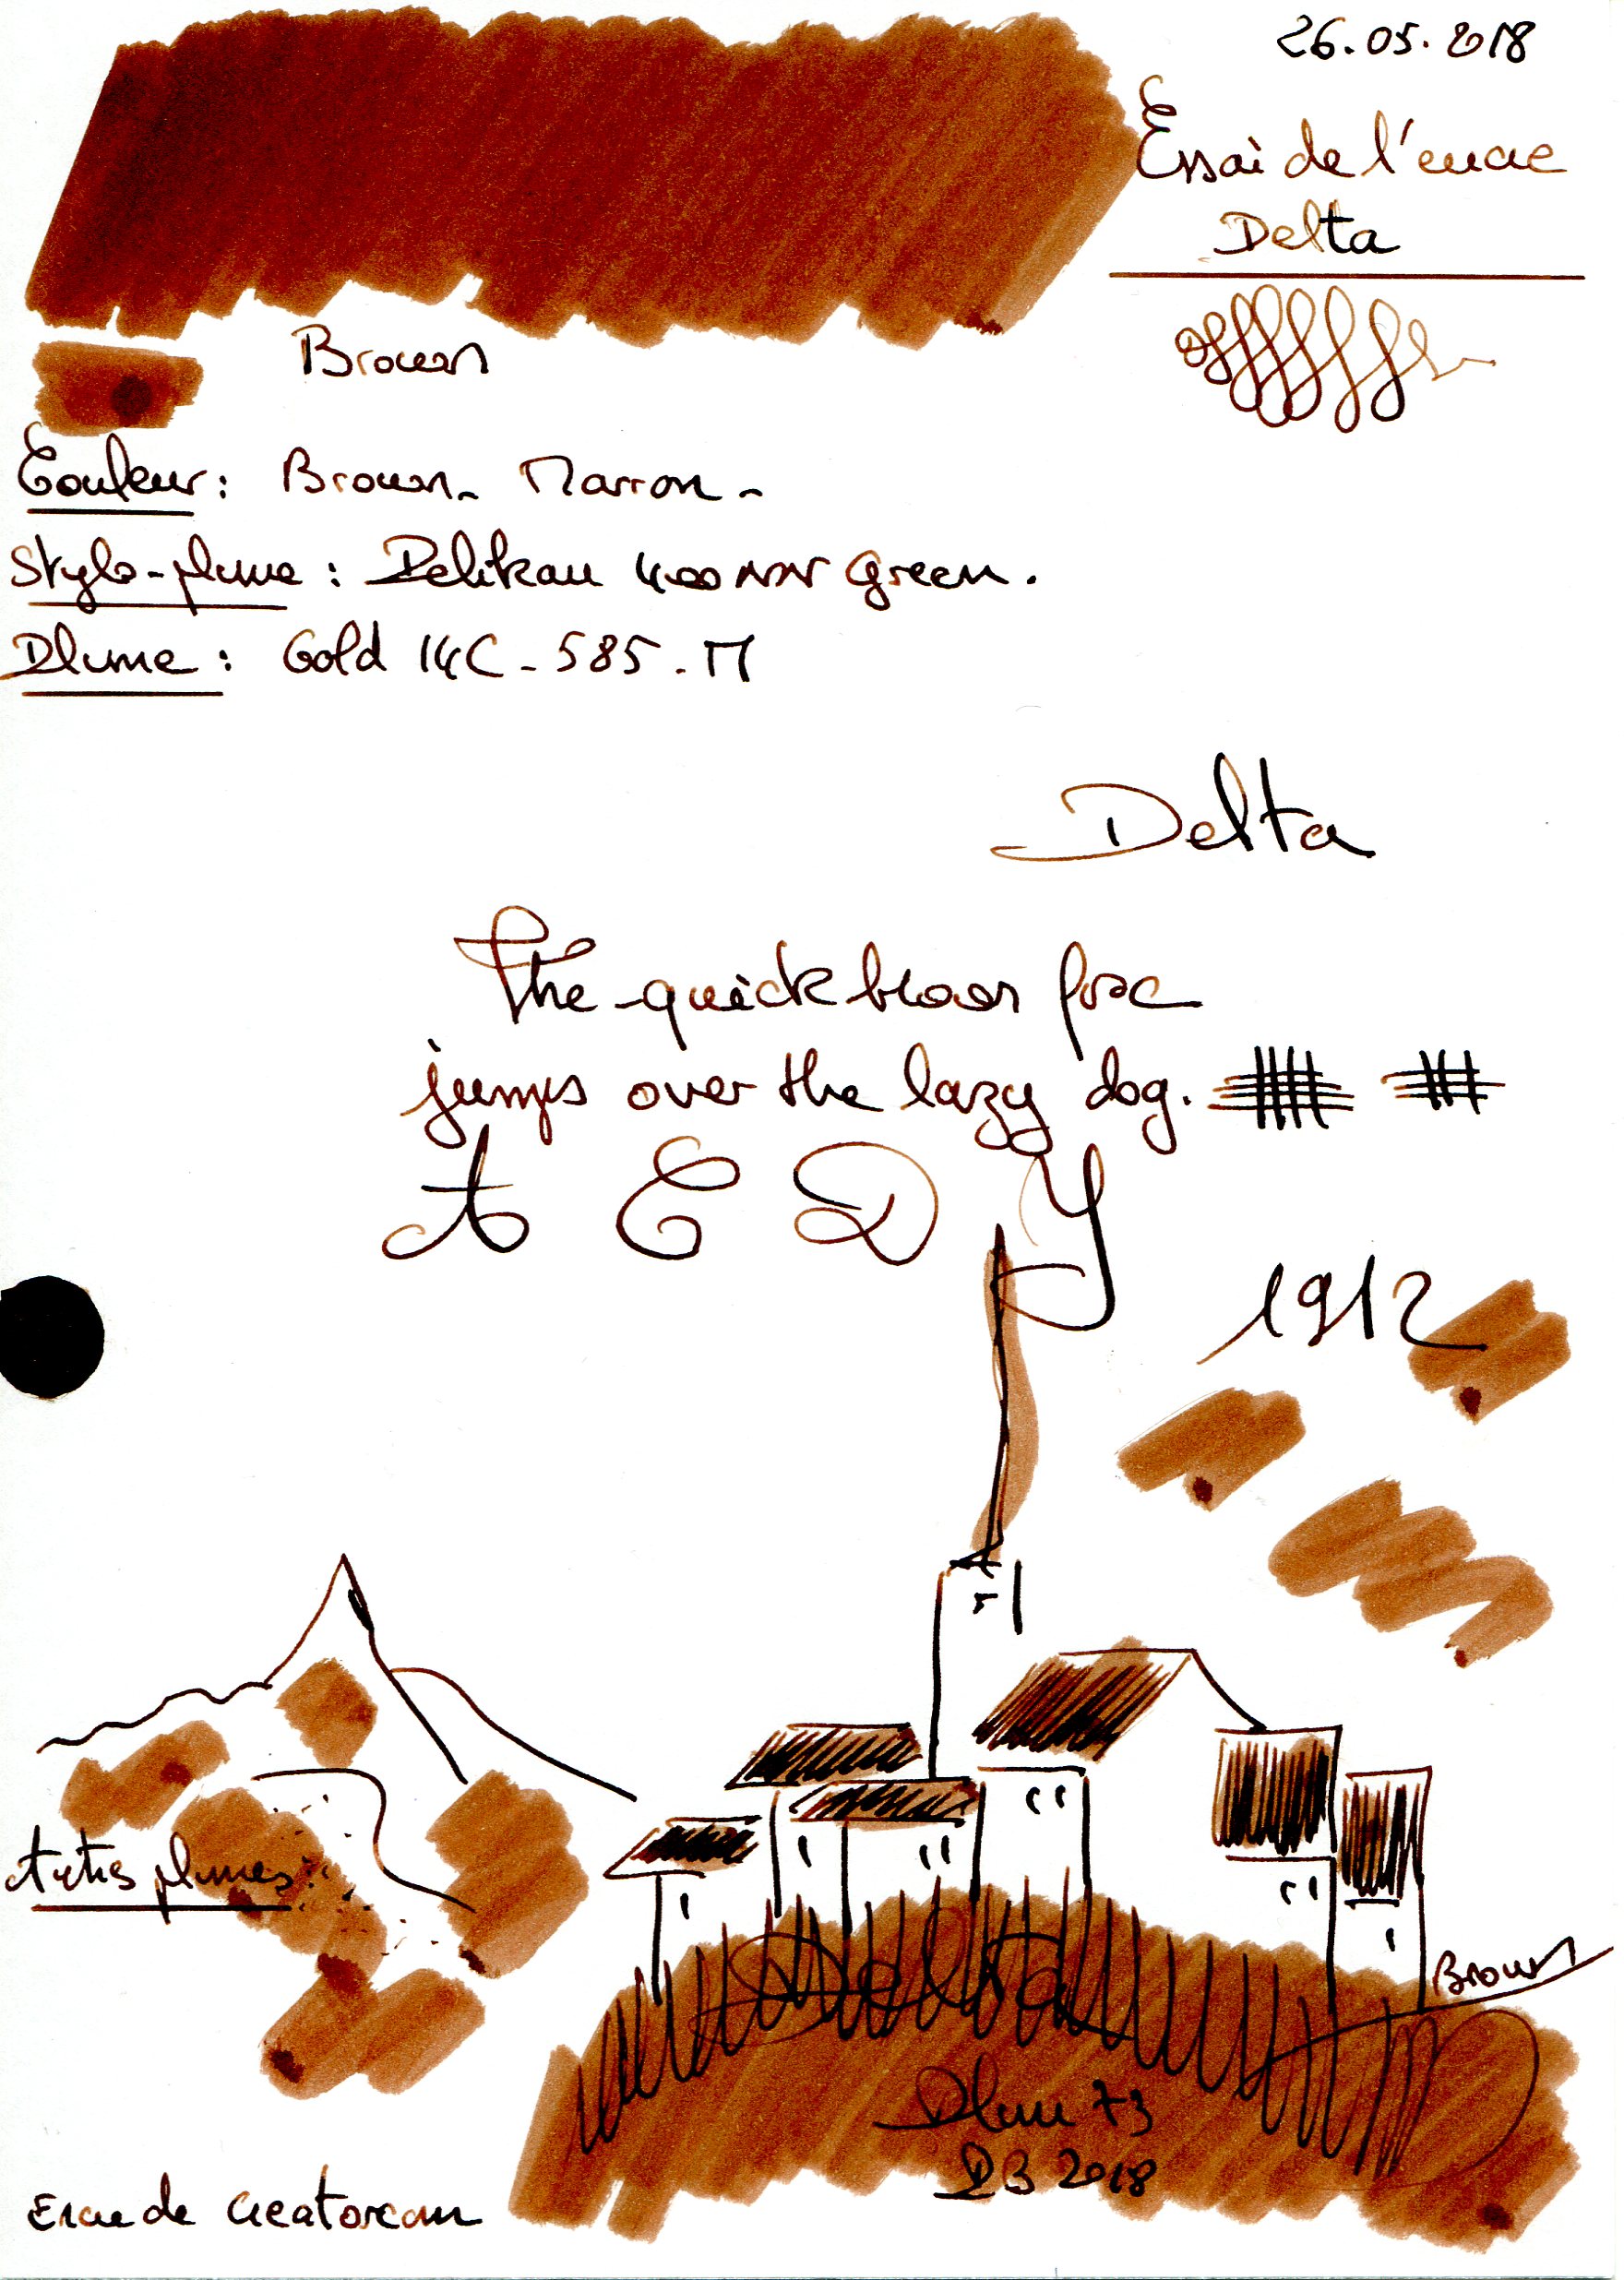 26.05.2018
Essai de l'encre
Delta
Brown
Couleur : Brown - Marron -
Stylo-plume : Pelikan 400 NN Green.
Plume : Gold 14C - 585 - M
Delta
The quick brown fox
jumps over the lazy dog.
A E D Y
1912
Autres plumes :
Delta
Brown
Plum 73
PB 2018
Encre de